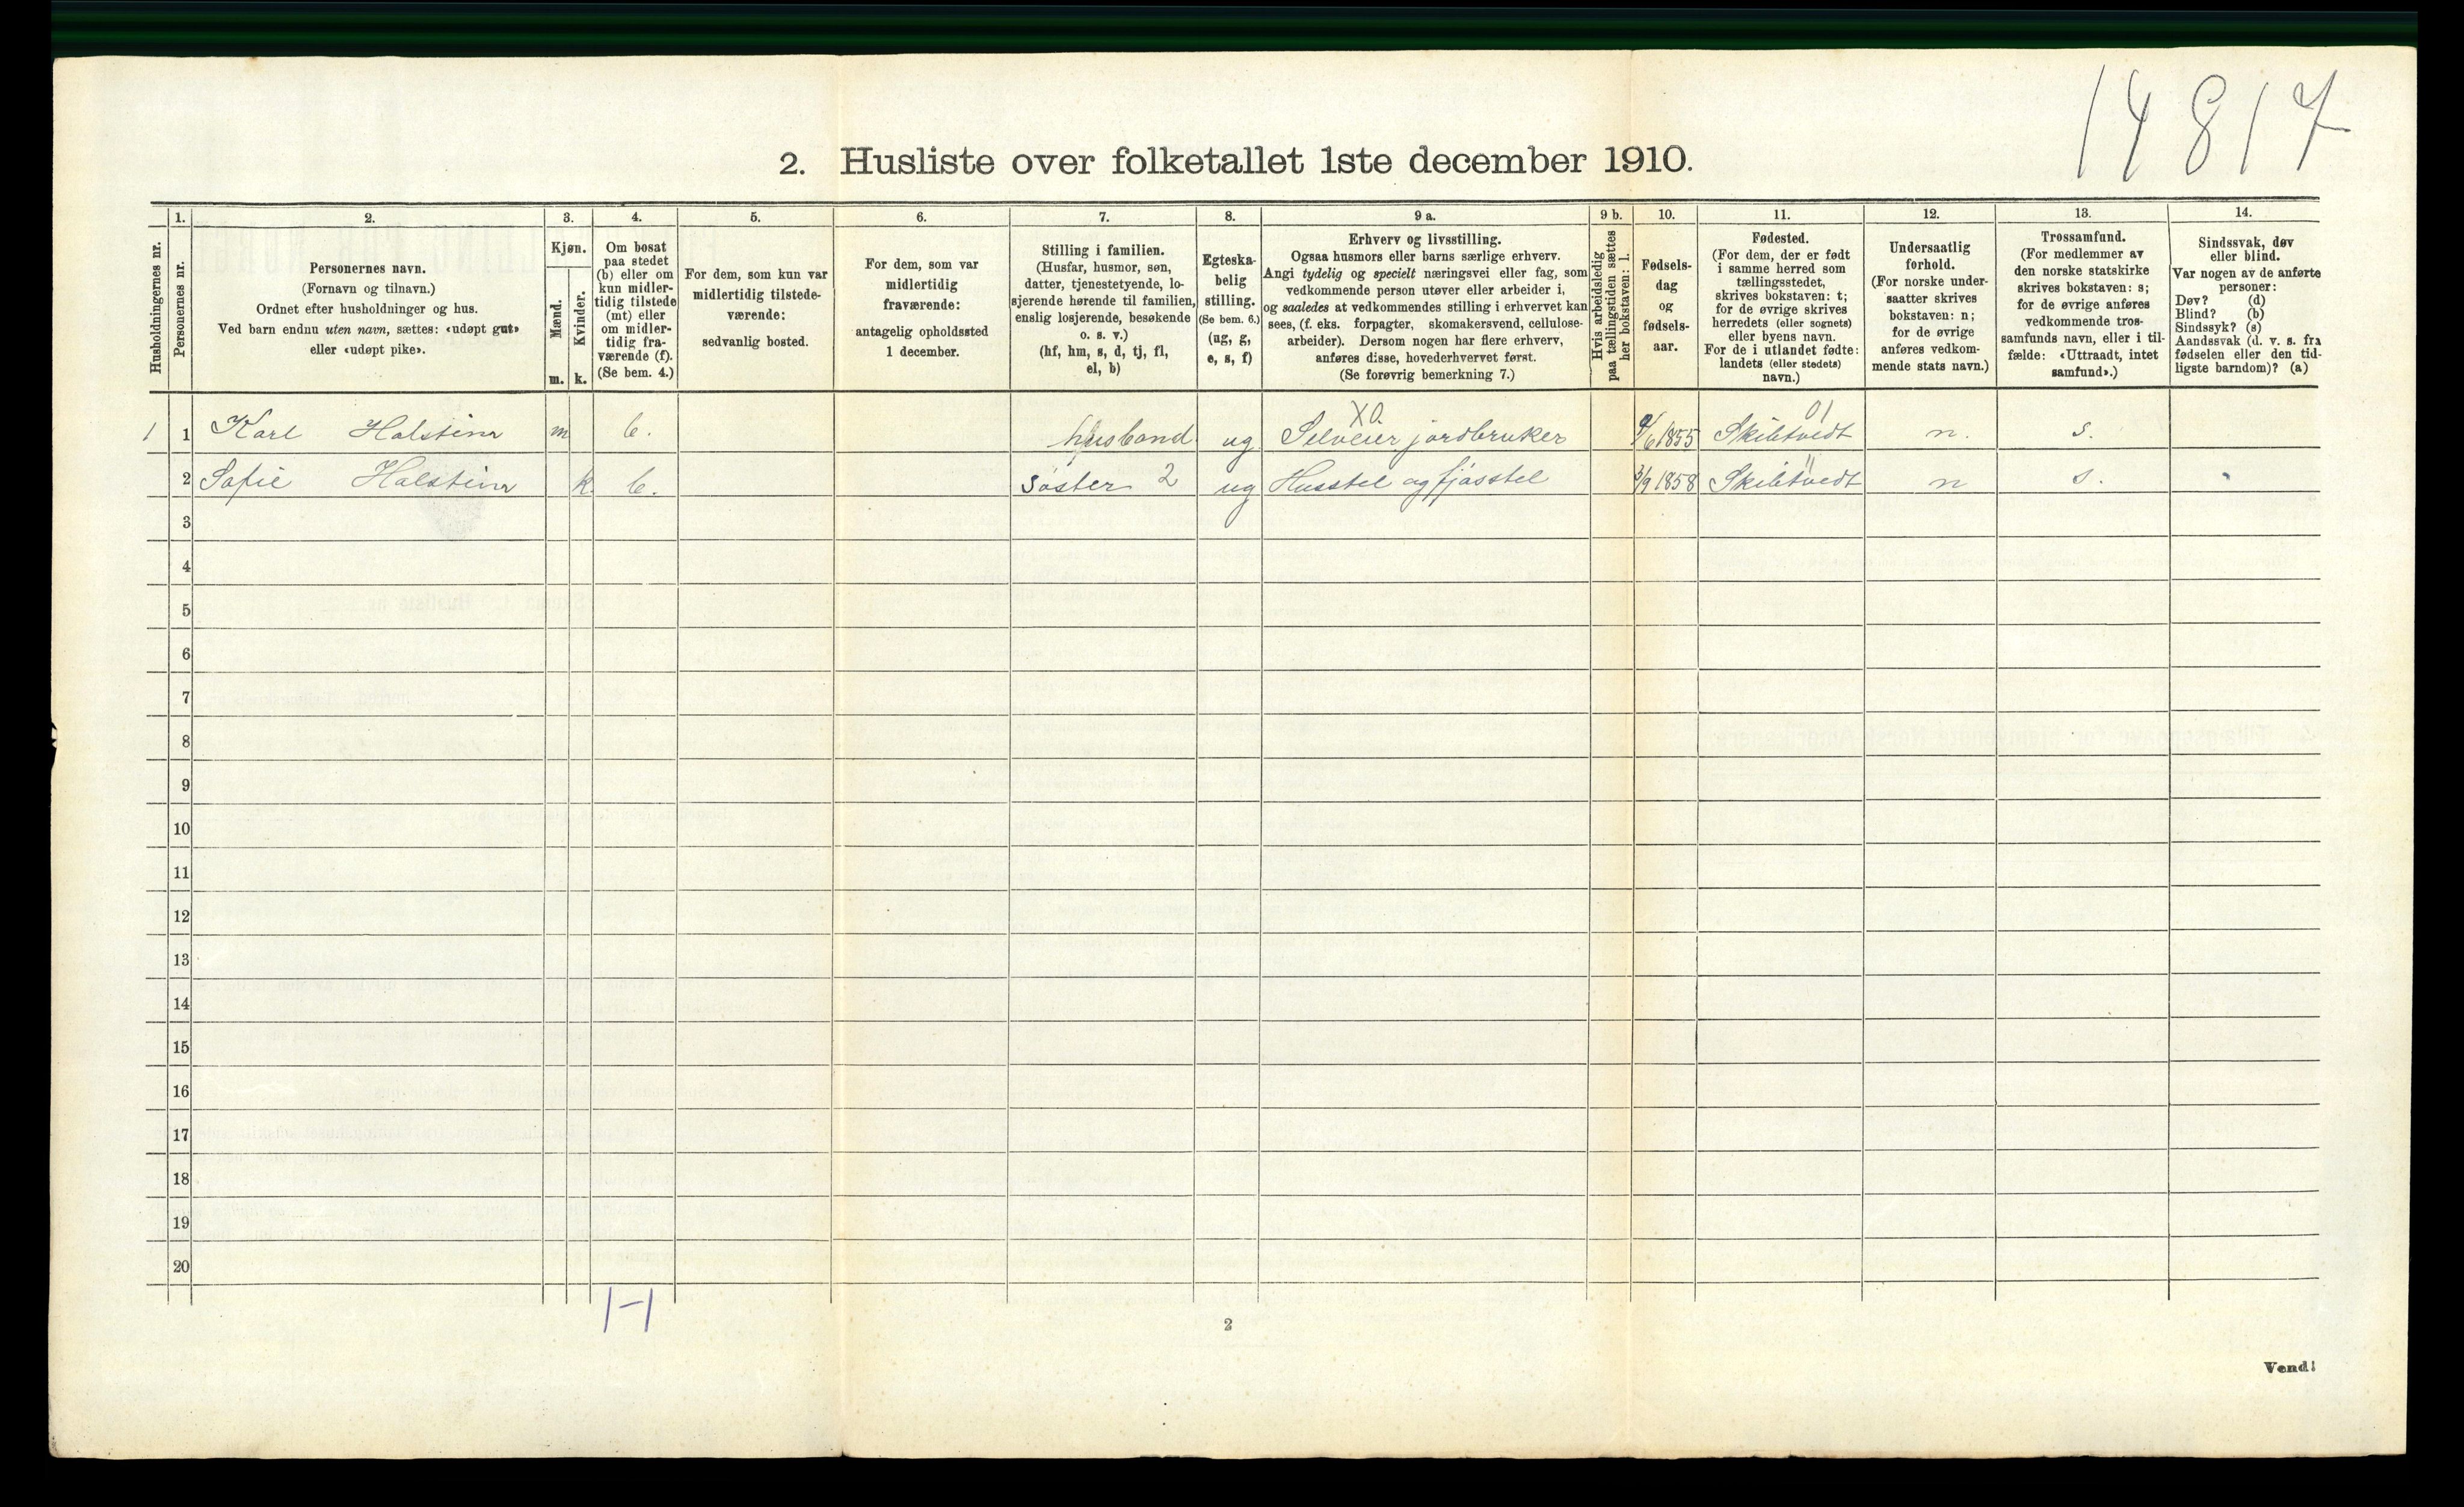 14817
2. Husliste over folketallet 1ste december 1910.
Husholdningernes nr.
1.
Personernes nr.
2.
Personernes navn.
(Fornavn og tilnavn.)
Ordnet efter husholdninger og hus.
Ved barn endnu uten navn, sættes: «udøpt gut»
eller «udøpt pike».
3.
Kjøn.
Mænd.
Kvinder.
m. k.
4.
Om bosat
paa stedet
(b) eller om
kun midler-
tidig tilstede
(mt) eller
om midler-
tidig fra-
værende (f).
(Se bem. 4.)
5.
For dem, som kun var
midlertidig tilstede-
værende:
sedvanlig bosted.
6.
For dem, som var
midlertidig
fraværende:
antagelig opholdssted
1 december.
7.
Stilling i familien.
(Husfar, husmor, søn,
datter, tjenestetyende, lo-
sjerende hørende til familien,
enslig losjerende, besøkende
o. s. v.)
(hf, hm, s, d, tj, fl,
el, b)
8.
Egteska-
belig
stilling.
(Se bem. 6.)
(ug, g,
e, s, f)
9 a.
Erhverv og livsstilling.
Ogsaa husmors eller barns særlige erhverv.
Angi tydelig og specielt næringsvei eller fag, som
vedkommende person utøver eller arbeider i,
og saaledes at vedkommendes stilling i erhvervet kan
sees, (f. eks. forpagter, skomakersvend, cellulose-
arbeider). Dersom nogen har flere erhverv,
anføres disse, hovederhvervet først.
(Se forøvrig bemerkning 7.)
9 b.
Hvis arbeidsledig
paa tællingstiden sættes
her bokstaven: l.
10.
Fødsels-
dag
og
fødsels-
aar.
11.
Fødested.
(For dem, der er født
i samme herred som
tællingsstedet,
skrives bokstaven: t;
for de øvrige skrives
herredets (eller sognets)
eller byens navn.
For de i utlandet fødte:
landets (eller stedets)
navn.)
12.
Undersaatlig
forhold.
(For norske under-
saatter skrives
bokstaven: n;
for de øvrige
anføres vedkom-
mende stats navn.)
13.
Trossamfund.
(For medlemmer av
den norske statskirke
skrives bokstaven: s;
for de øvrige anføres
vedkommende tros-
samfunds navn, eller i til-
fælde: «Uttraadt, intet
samfund».)
14.
Sindssvak, døv
eller blind.
Var nogen av de anførte
personer:
Døv? (d)
Blind? (b)
Sindssyk? (s)
Aandssvak (d. v. s. fra
fødselen eller den tid-
ligste barndom)? (a)
X0. 01
1 1 Karl Halstein m b. husbond ug Selveier jordbruker /6 1855 Skibtvedt n. s.
2 Sofie Halstein k b. söster 2 ug Husstel og fjösstel 3/9 1858 Skibtvedt n s.
3
4
5
6
7
8
9
10
11
12
13
14
15
16
17
18
19
20
1-1
2
Vend!